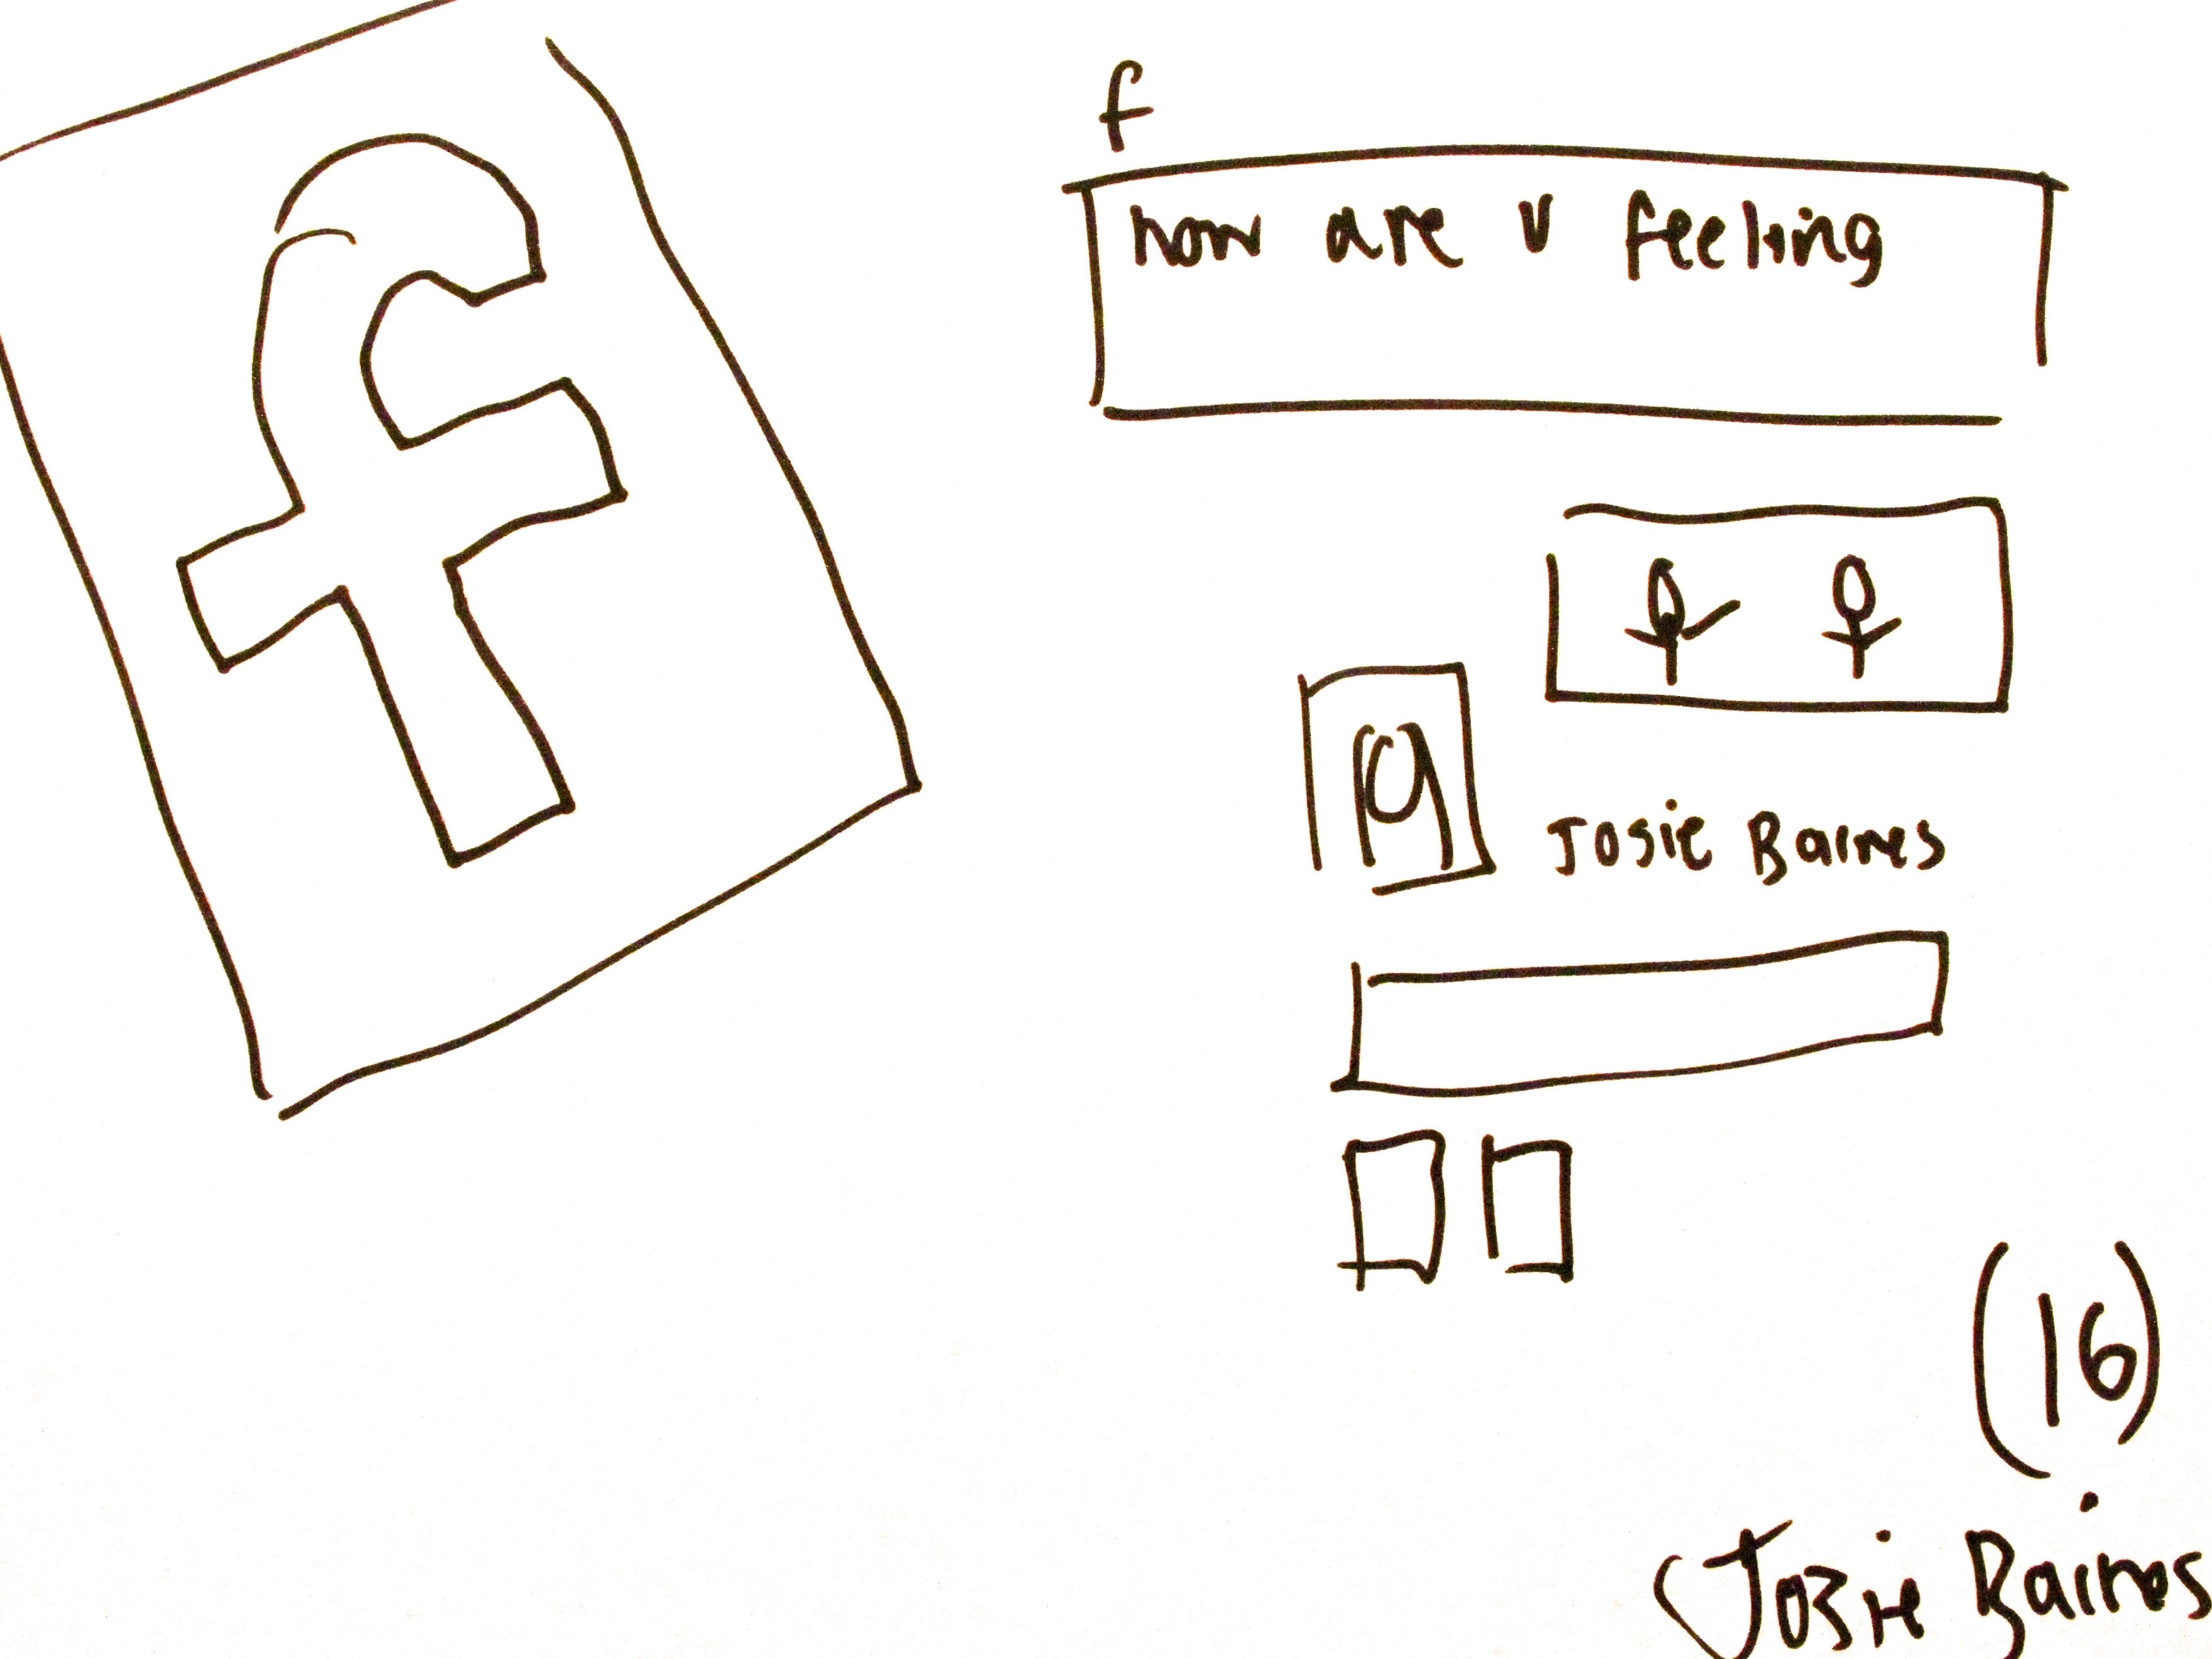 f
f
how are u feeling
Josie Baines
(16)
Josie Baines